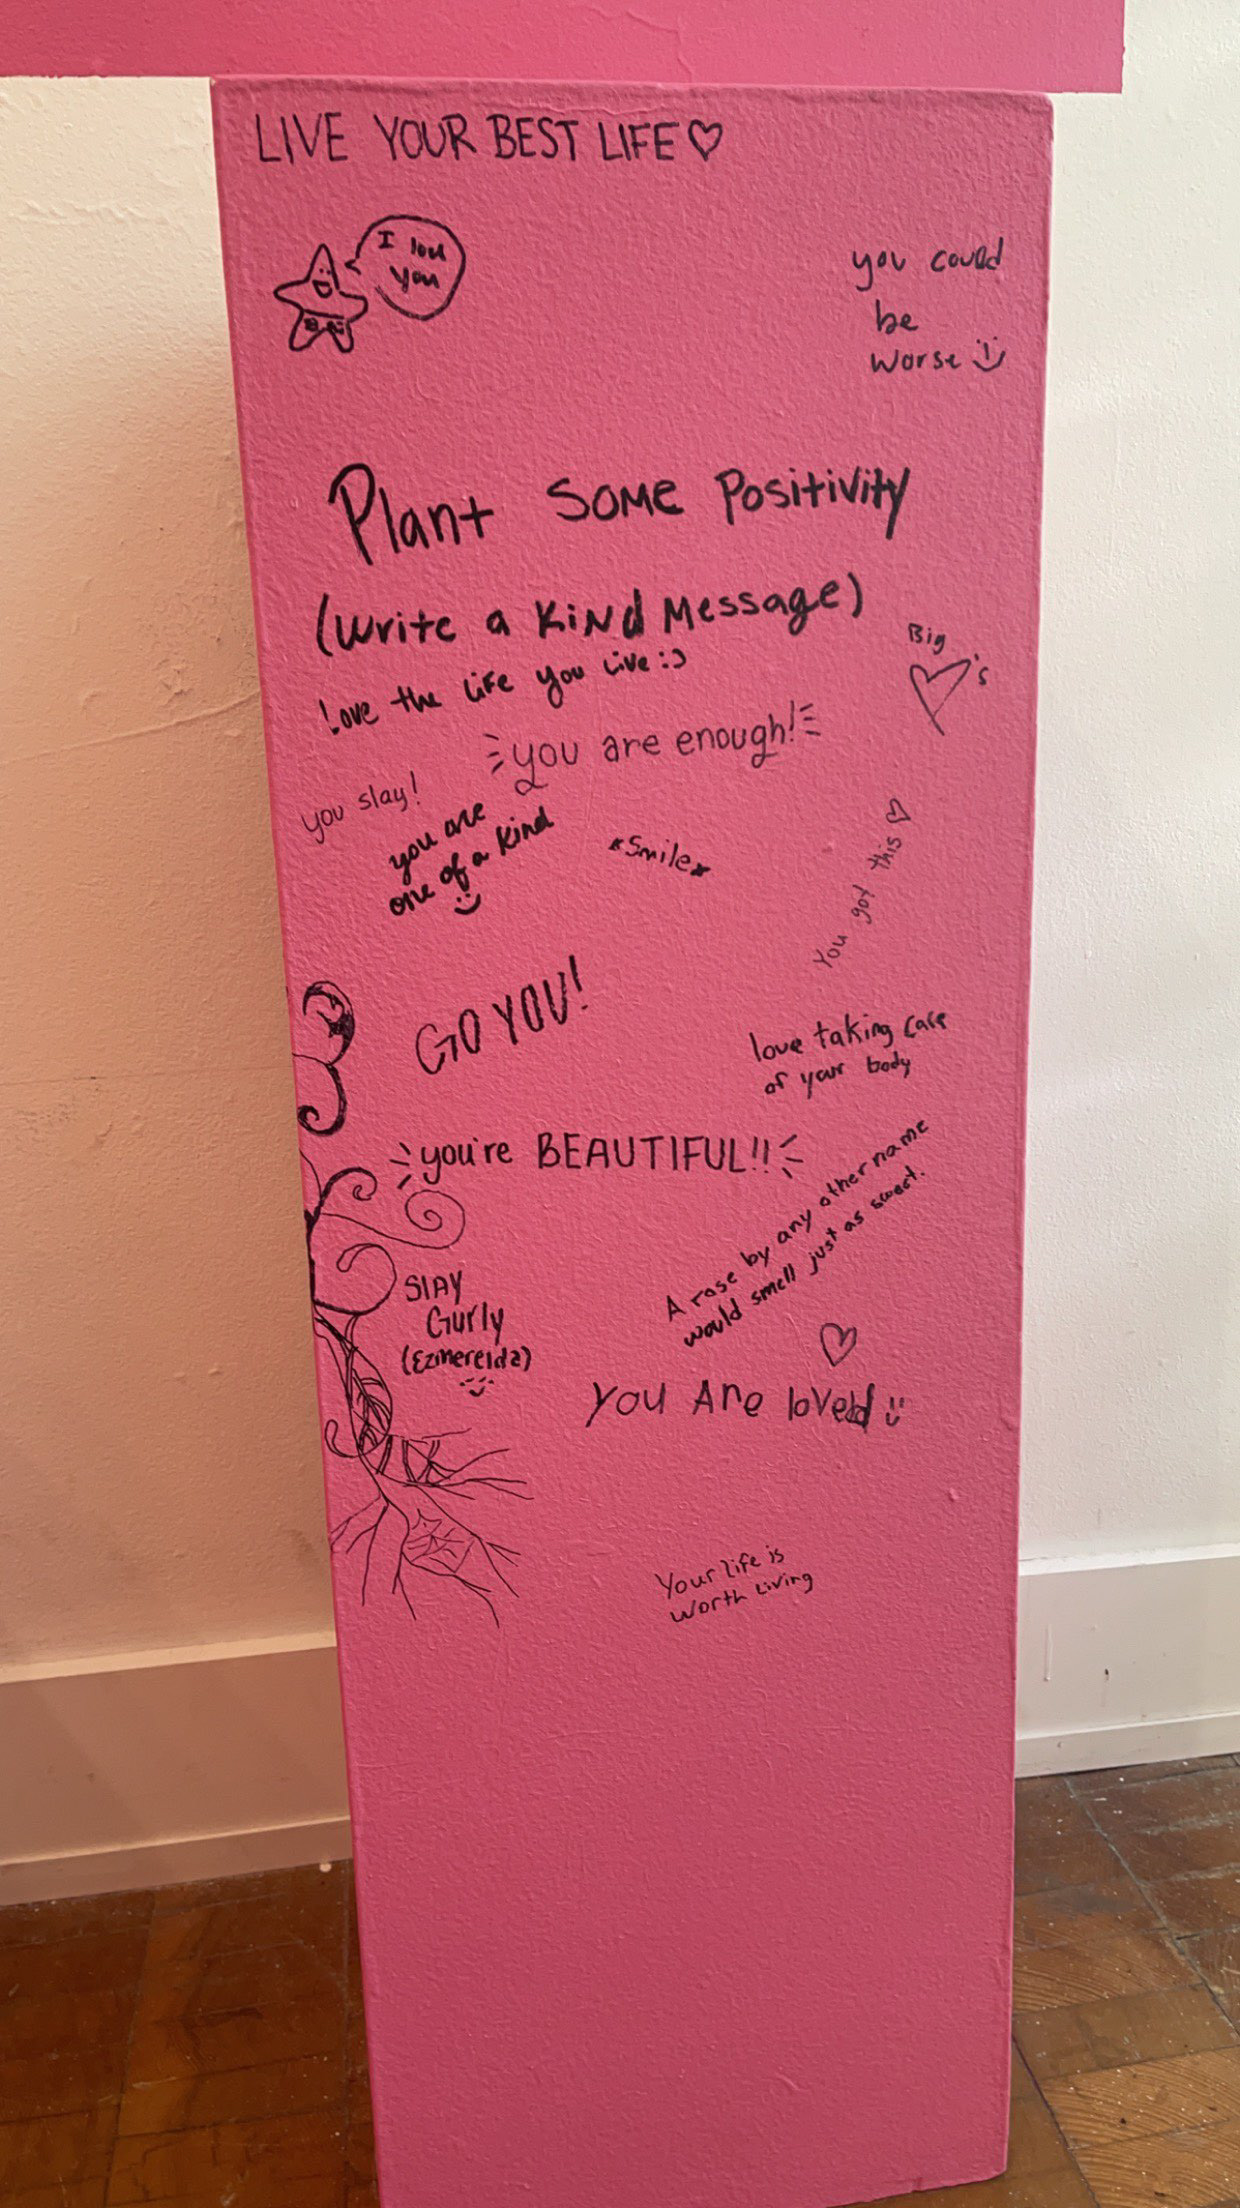 LIVE YOUR BEST LIFE♡
I lou
you
you could
be
worse
Plant Some Positivity
(Write a Kind Message)
Love the life you live :)
Big
♡'s
you are enough!
you slay!
you are
one of a kind
*Smile*
You got this ♡
GO YOU!
love taking care
of your body
you're BEAUTIFUL!!
A rose by any other name
would smell just as sweet.
SLAY
Gurly
(Ezmerelda)
YOU Are loved
Your life is
worth living